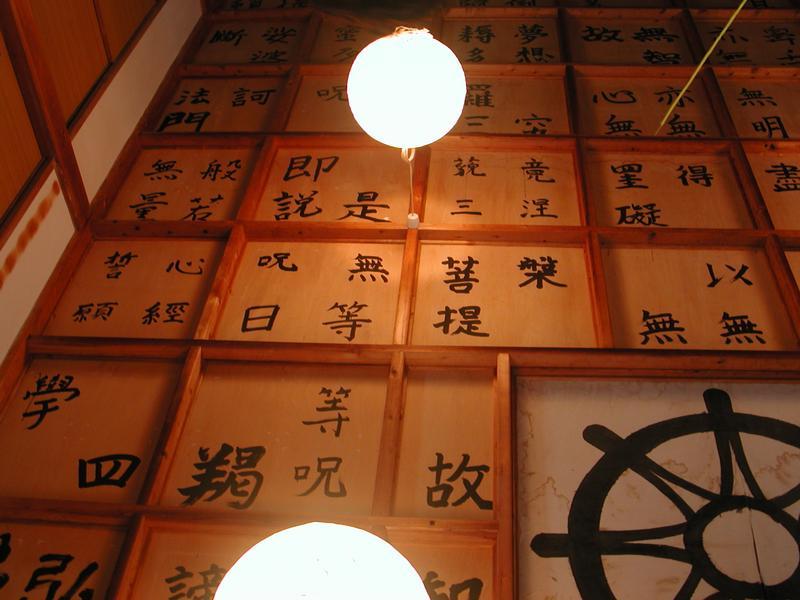 無明盡
無智亦無得以無
故心無罣礙無
夢想究竟涅槃
耨多羅三藐三菩提故知
是無等等呪
呪即説呪曰羯諦
娑婆訶般若心經四弘
斷法門無量誓願學